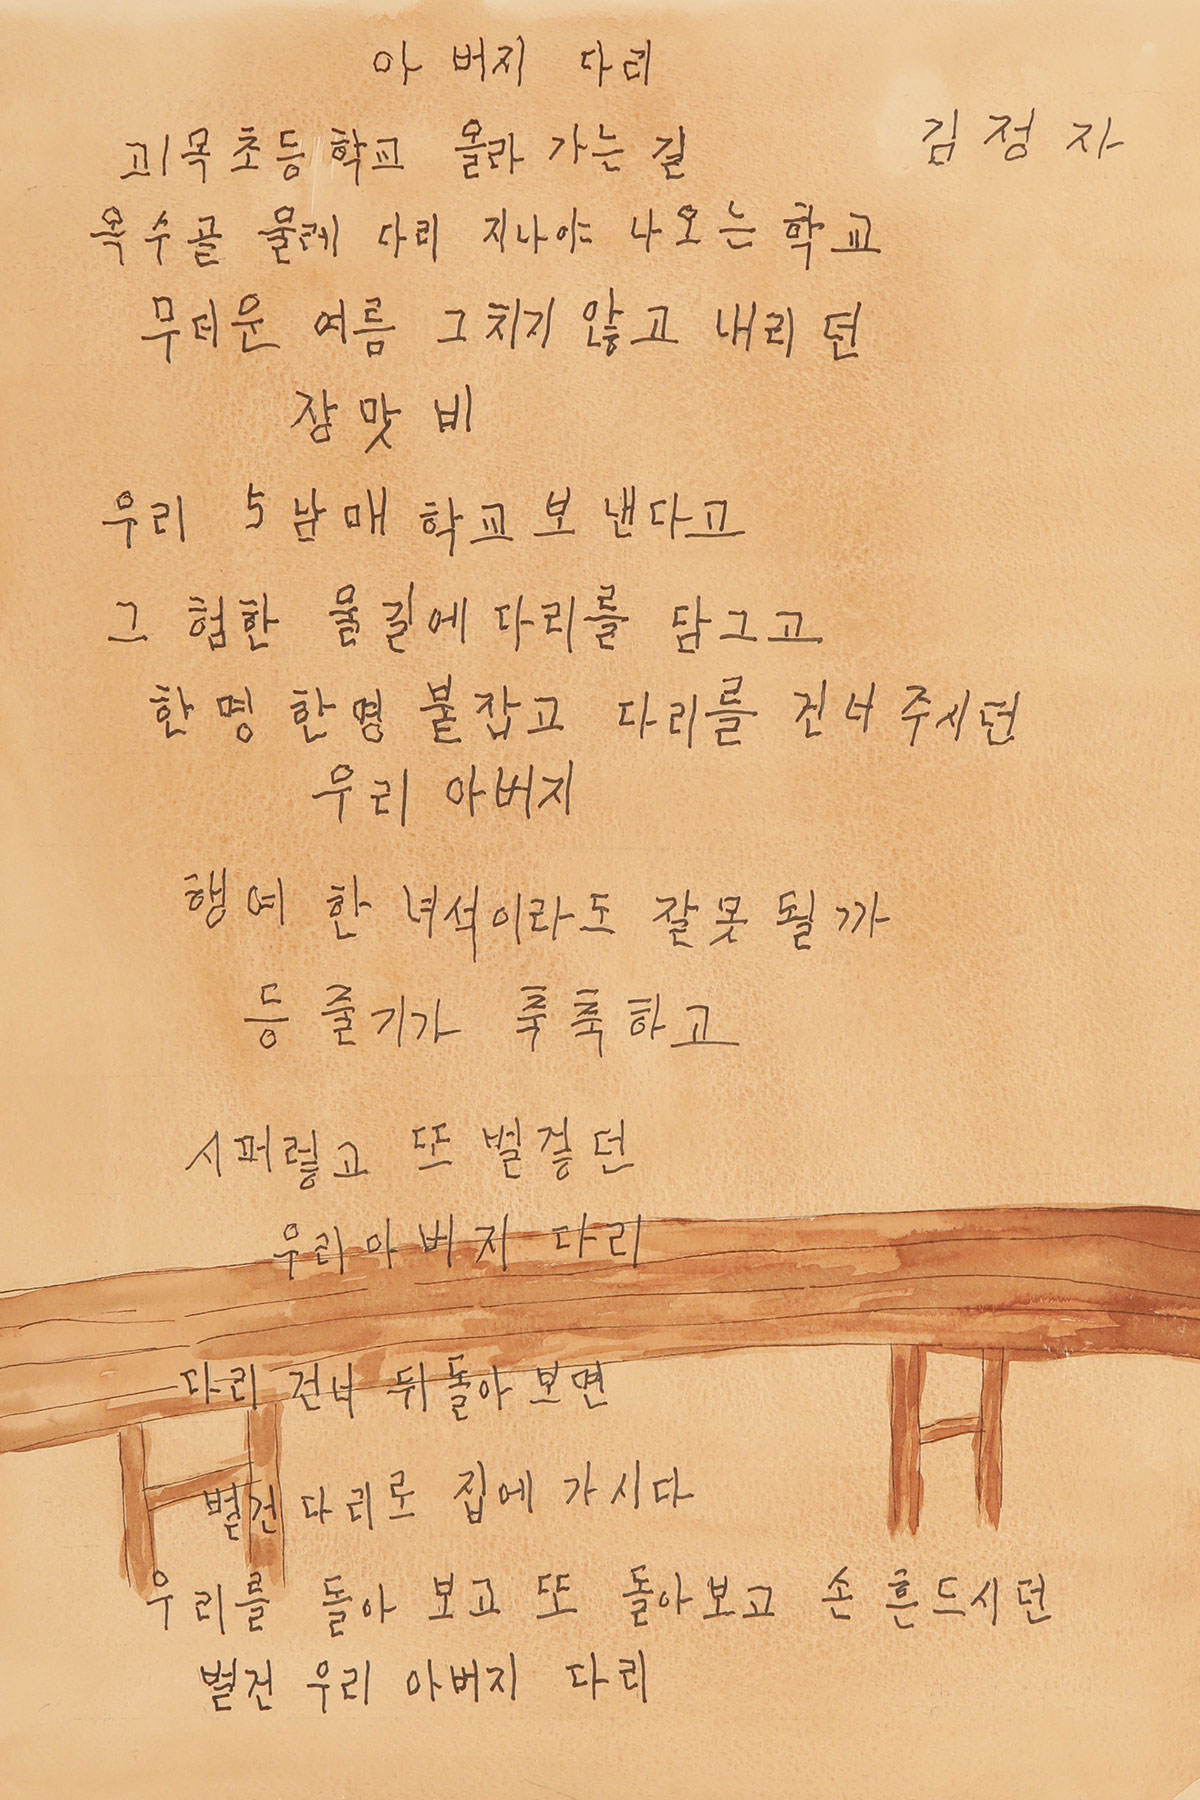 아버지 다리
김정자
괴목초등학교 올라가는 길
옥수골 물레 다리 지나야 나오는 학교
무더운 여름 그치지 않고 내리던
장맛비
우리 5남매 학교 보낸다고
그 험한 물길에 다리를 담그고
한명 한명 붙잡고 다리를 건너 주시던
우리 아버지
행여 한 녀석이라도 잘못될까
등줄기가 축축하고
시퍼렇고 또 벌겋던
우리 아버지 다리
다리 건너 뒤돌아 보면
벌건 다리로 집에 가시다
우리를 돌아 보고 또 돌아보고 손 흔드시던
벌건 우리 아버지 다리